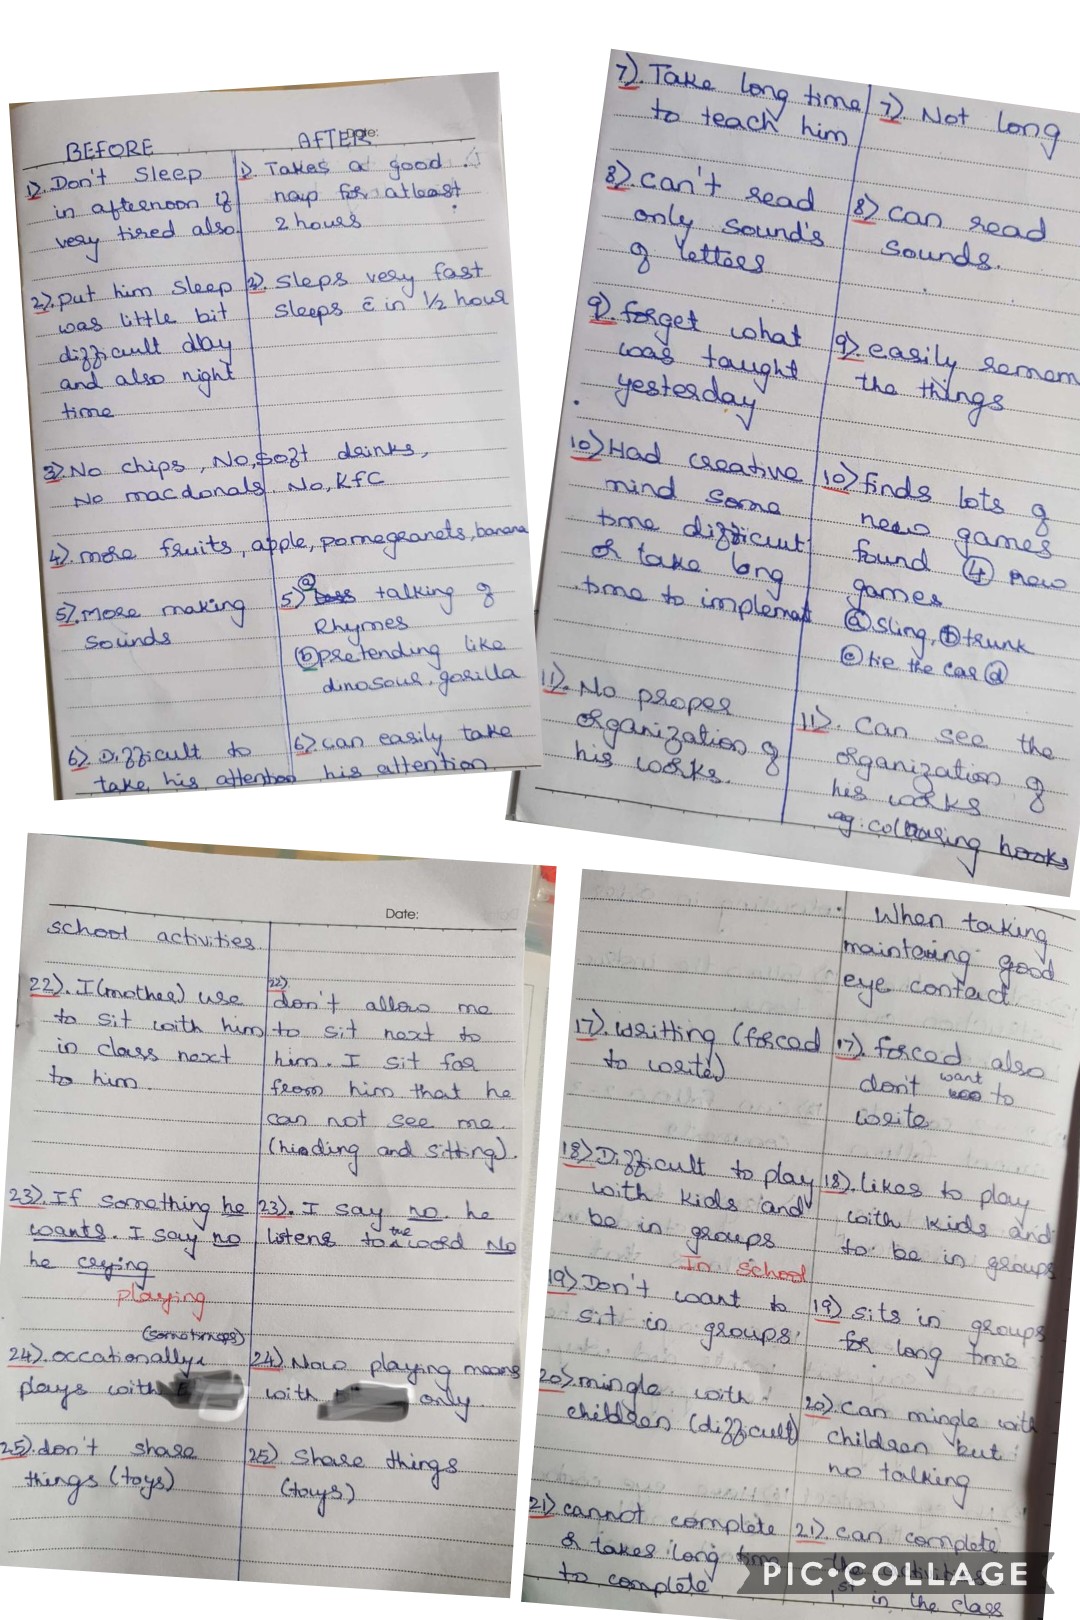 BEFORE
AFTER
Date:
1). Don't Sleep
in afternoon if
very tired also.
1). Takes a good
nap for atleast
2 hours
2). put him sleep
was little bit
difficult day
and also night
time
2). Sleps very fast
sleeps c̄ in 1/2 hour
3). No chips, No, soft drinks,
No macdonals. No, KFC
4). more fruits, apple, pomegranets, banana
5). More making
sounds
5) (a) talking of
Rhymes
(b) pretending like
dinosour, gorilla
6). Difficult to
take his attention
6). can easily take
his attention
7). Take long time
to teach him
7). Not long
8). can't read
only sound's
of letters
8) can read
sounds.
9). forget what
was taught
yesterday
9). easily remem
the things
10) Had creative
mind some
time difficult
or take long
time to implemnt
10) finds lots of
new games
found (4) new
games
(a) sling, (b) trunk
(c) tie the car (d)
11). No proper
organization of
his works.
11). Can see the
organization of
his works
eg: books
Date:
school activities
22). I (mother) use
to sit with him
in class next
to him.
22)
don't allow me
to sit next to
him. I sit far
from him that he
can not see me.
(hinding and sitting).
23). If something he
wants. I say no
he crying
23). I say no. he
listens to the word No
playing
(sometimes)
24). occationally
plays with
24). Now playing means
with only.
25). don't share
things (toys)
25) Share things
(toys)
When talking
maintaing good
eye contact.
17). writting (forced
to write)
17). forced also
don't want to
write
18) Difficult to play
with kids and
be in groups
18). likes to play
with kids and
to be in groups
In school
19) Don't want to
sit in groups.
19) sits in groups
for long time
20). mingle with
children (difficult)
20). can mingle with
children but
no talking
21) cannot complete
or takes long time
to complete
21). can complete
the activities
1st in the class
PIC•COLLAGE